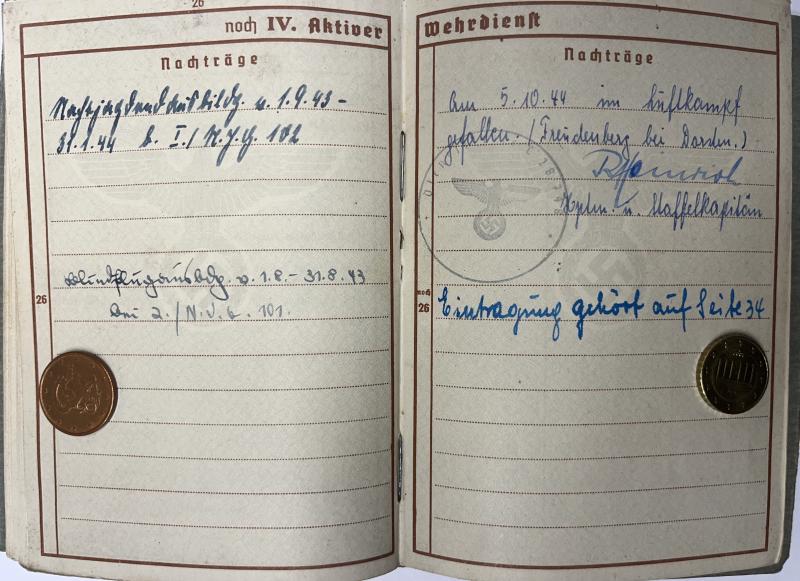 26
noch IV. Aktiver
Nachträge
Nachtjagdausbildg. v. 1.9.43 -
31.1.44 b. I./N.J.G. 102
Blindflugausbdg. v. 1.8. - 31.8.43
26
bei 2./N.J.G. 101.
Wehrdienst
Nachträge
Am 5.10.44 im Luftkampf
gefallen. (Freudenberg bei Dorsten.)
Hptm. u. Staffelkapitän
noch
26
Eintragung gehört auf Seite 34